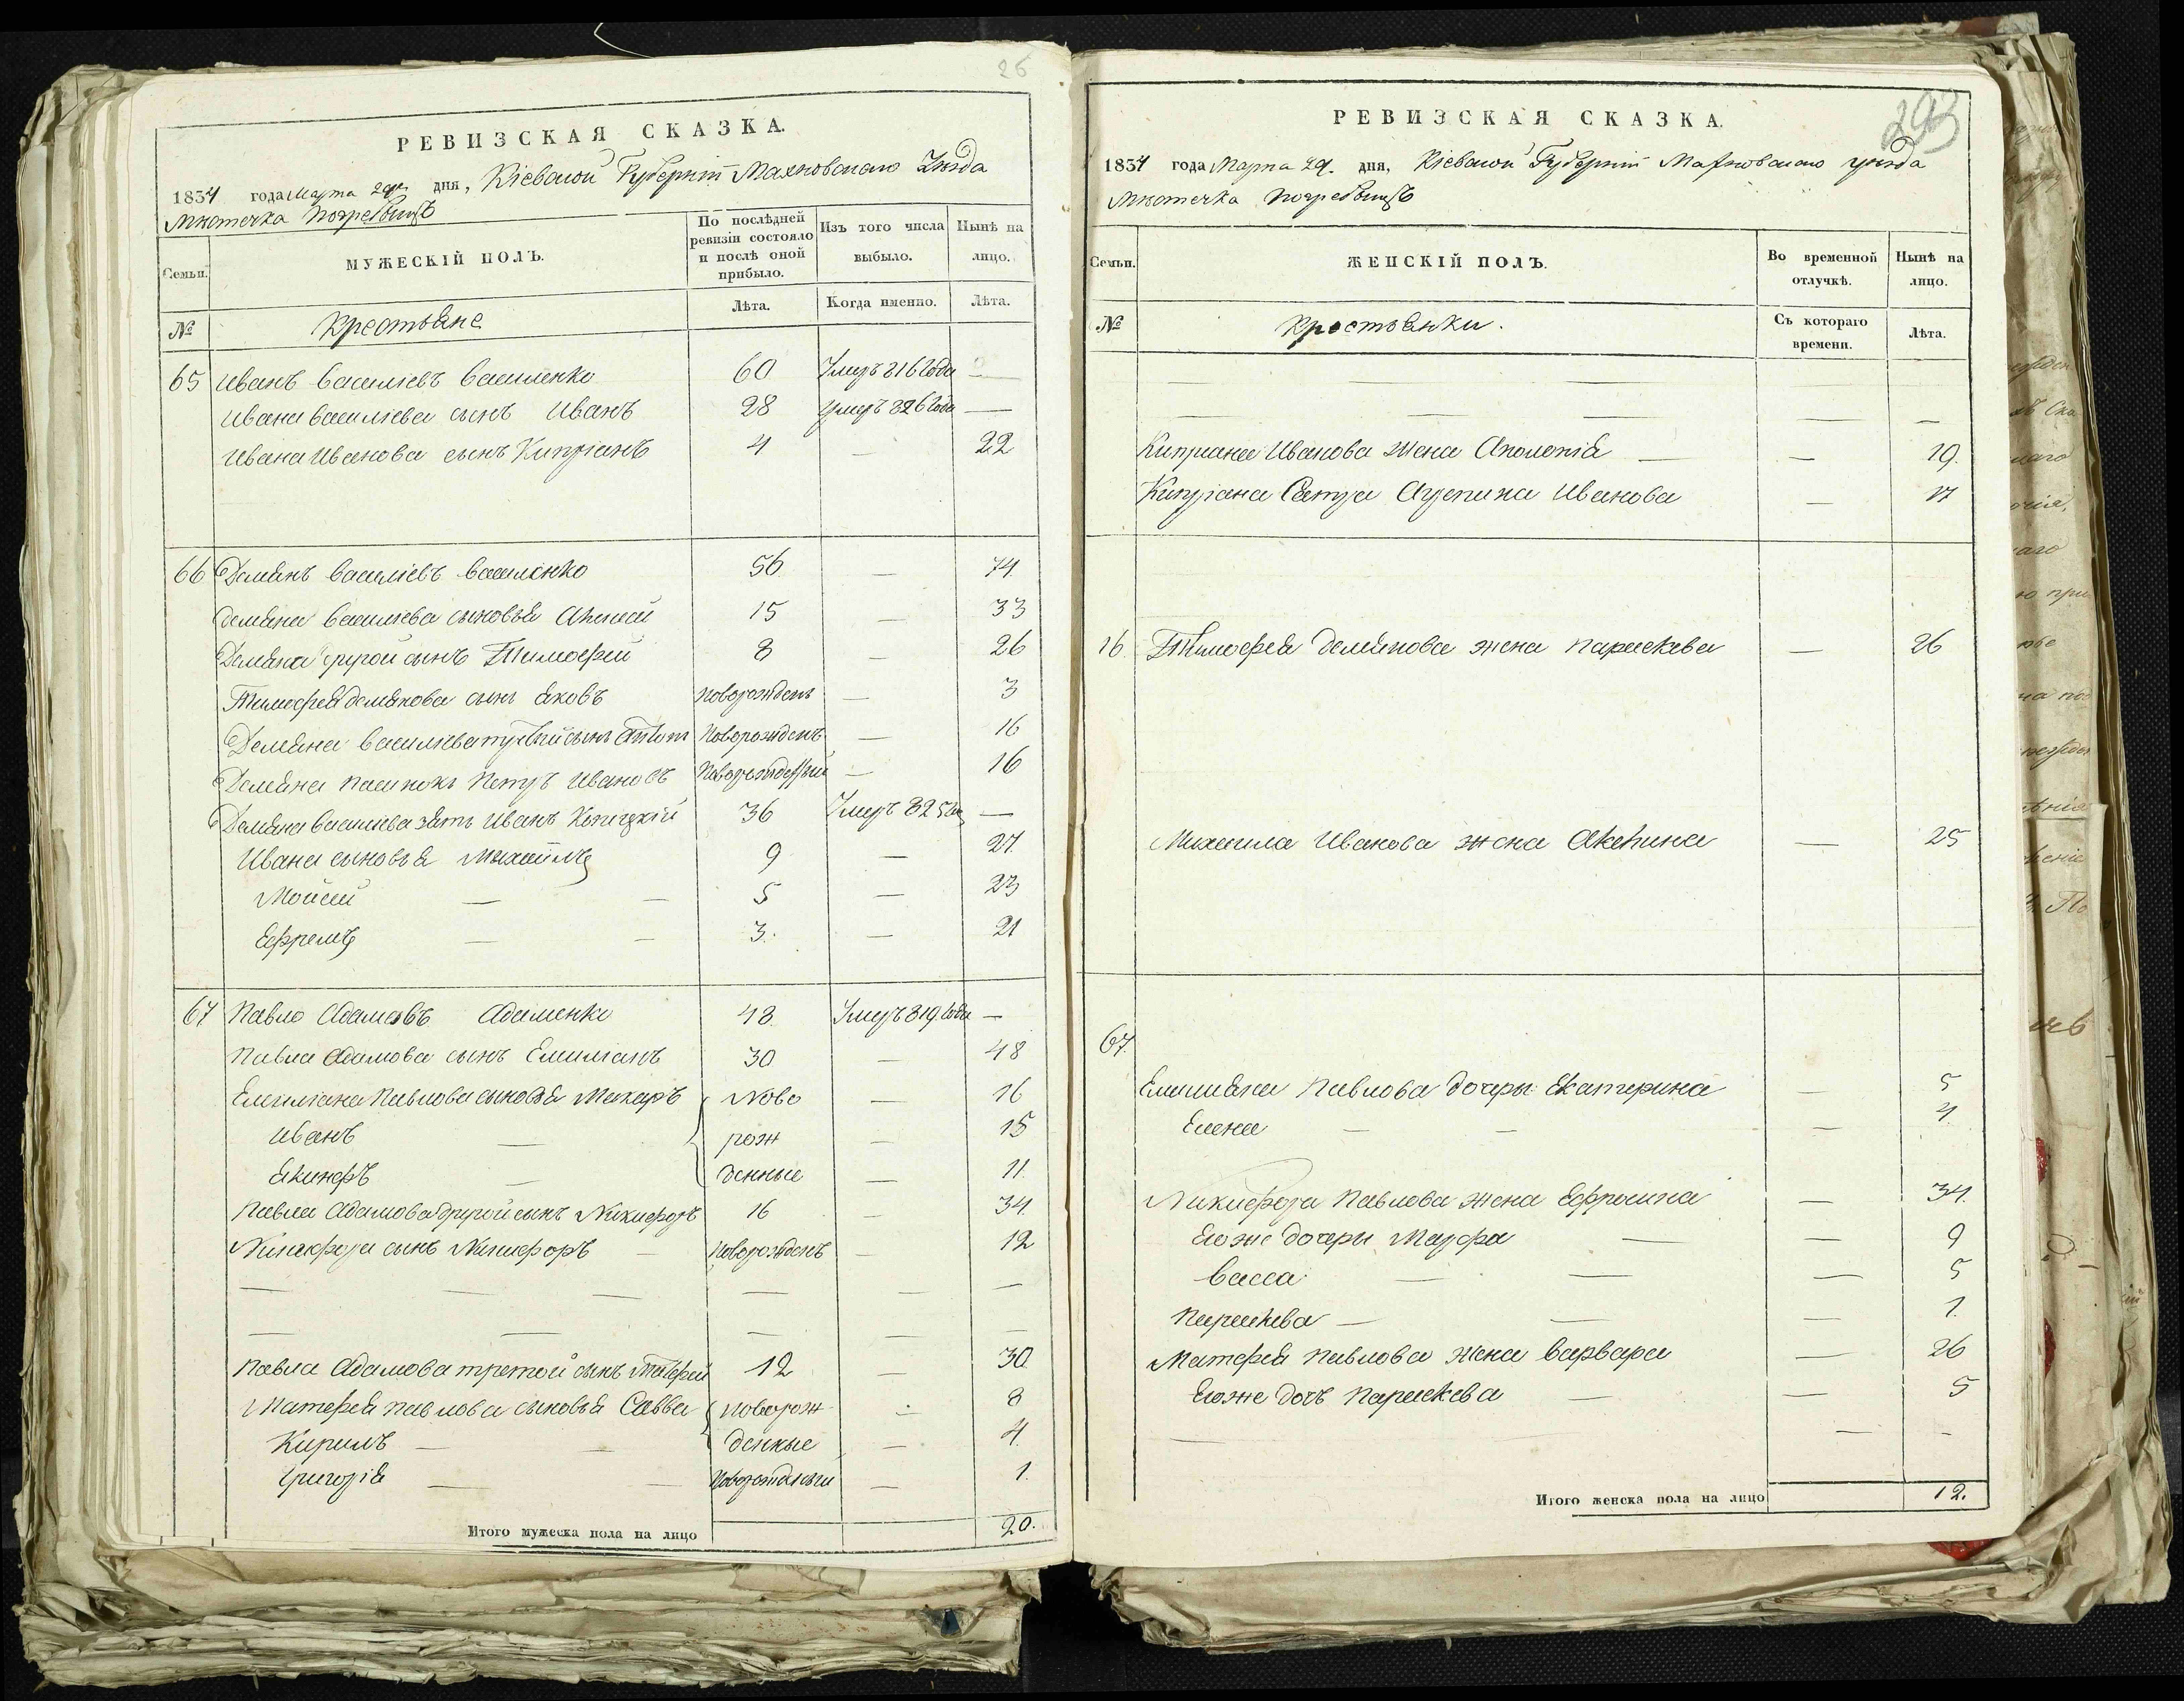 26
РЕВИЗСКАЯ СКАЗКА.
1834 года Марта 29 дня, Кіевской Губерніи Махновскаго Уѣзда
Мѣстечка Погребищъ
Семьи.
МУЖЕСКІЙ ПОЛЪ.
По послѣдней ревизіи состояло и послѣ оной прибыло.
Изъ того числа выбыло.
Нынѣ на лицо.
№
Крестьяне
Лѣта.
Когда именно.
Лѣта.
65 Иванъ Васильевъ Василенко 60 Умеръ 816 года —
Ивана Васильева сынъ Иванъ 28 Умеръ 826 года —
Ивана Иванова сынъ Кипріанъ 4 — 22
66 Демянъ Васильевъ Василенко 56 — 74
Демяна Васильева сыновья Алексей 15 — 33
Демяна другой сынъ Тимофей 8 — 26
Тимофея Демянова сынъ Яковъ новорожденъ — 3
Демяна Васильева третий сынъ Антонъ Новорожденъ — 16
Демяна пасинокъ Петръ Ивановъ Новорожденный — 16
Демяна Васильева зять Иванъ 36 Умеръ 825 —
Ивана сыновья Михайлъ 9 — 27
Мойсей — — 5 — 23
Ефремъ — — 3. — 21
67 Павло Адамовъ Адаменко 48. Умеръ 819 года —
Павла Адамова сынъ Емиліанъ 30 — 48
Емиліана Павлова сыновья Макаръ Ново — 16
Иванъ — рож — 15
Якинфъ — денные — 11.
Павла Адамова другой сынъ Никифоръ 16 — 34.
Никифора сынъ Никифоръ — Новорожденъ — 12
— — — — — —
— — — — —
Павла Адамова третой сынъ Матфей 12 — 30
Матфея Павлова сыновья Савва новорож — 8
Кирилъ — — денные — 4.
Григорія — — Новорожденый — 1.
Итого мужеска пола на лицо 20.
293
РЕВИЗСКАЯ СКАЗКА.
1834 года Марта 29. дня, Кіевской Губерніи Махновскаго уѣзда
Мѣстечка Погребищъ
Семьи.
ЖЕНСКІЙ ПОЛЪ.
Во временной отлучкѣ.
Нынѣ на лицо.
№
Крестьянки.
Съ котораго времени.
Лѣта.
— — — —
— — — — —
Кипріана Иванова жена Аполонія — — 19.
Кипріана Сестра Агрепина Иванова — 17
16. Тимофея Демянова жена Параскева — 26
Михаила Иванова жена Акепина — 25
67.
Емилияна Павлова дочери Екатерина — 5
Елена — — — 4.
Никифора Павлова жена Ефросина — 34.
Егоже дочери Марфа — — 9
Васса — — — 5
Параскева — — — 1.
Матфея Павлова жена Варвара — 26
Егоже дочъ Параскева — — 5
— — — -
Итого женска пола на лицо 12.